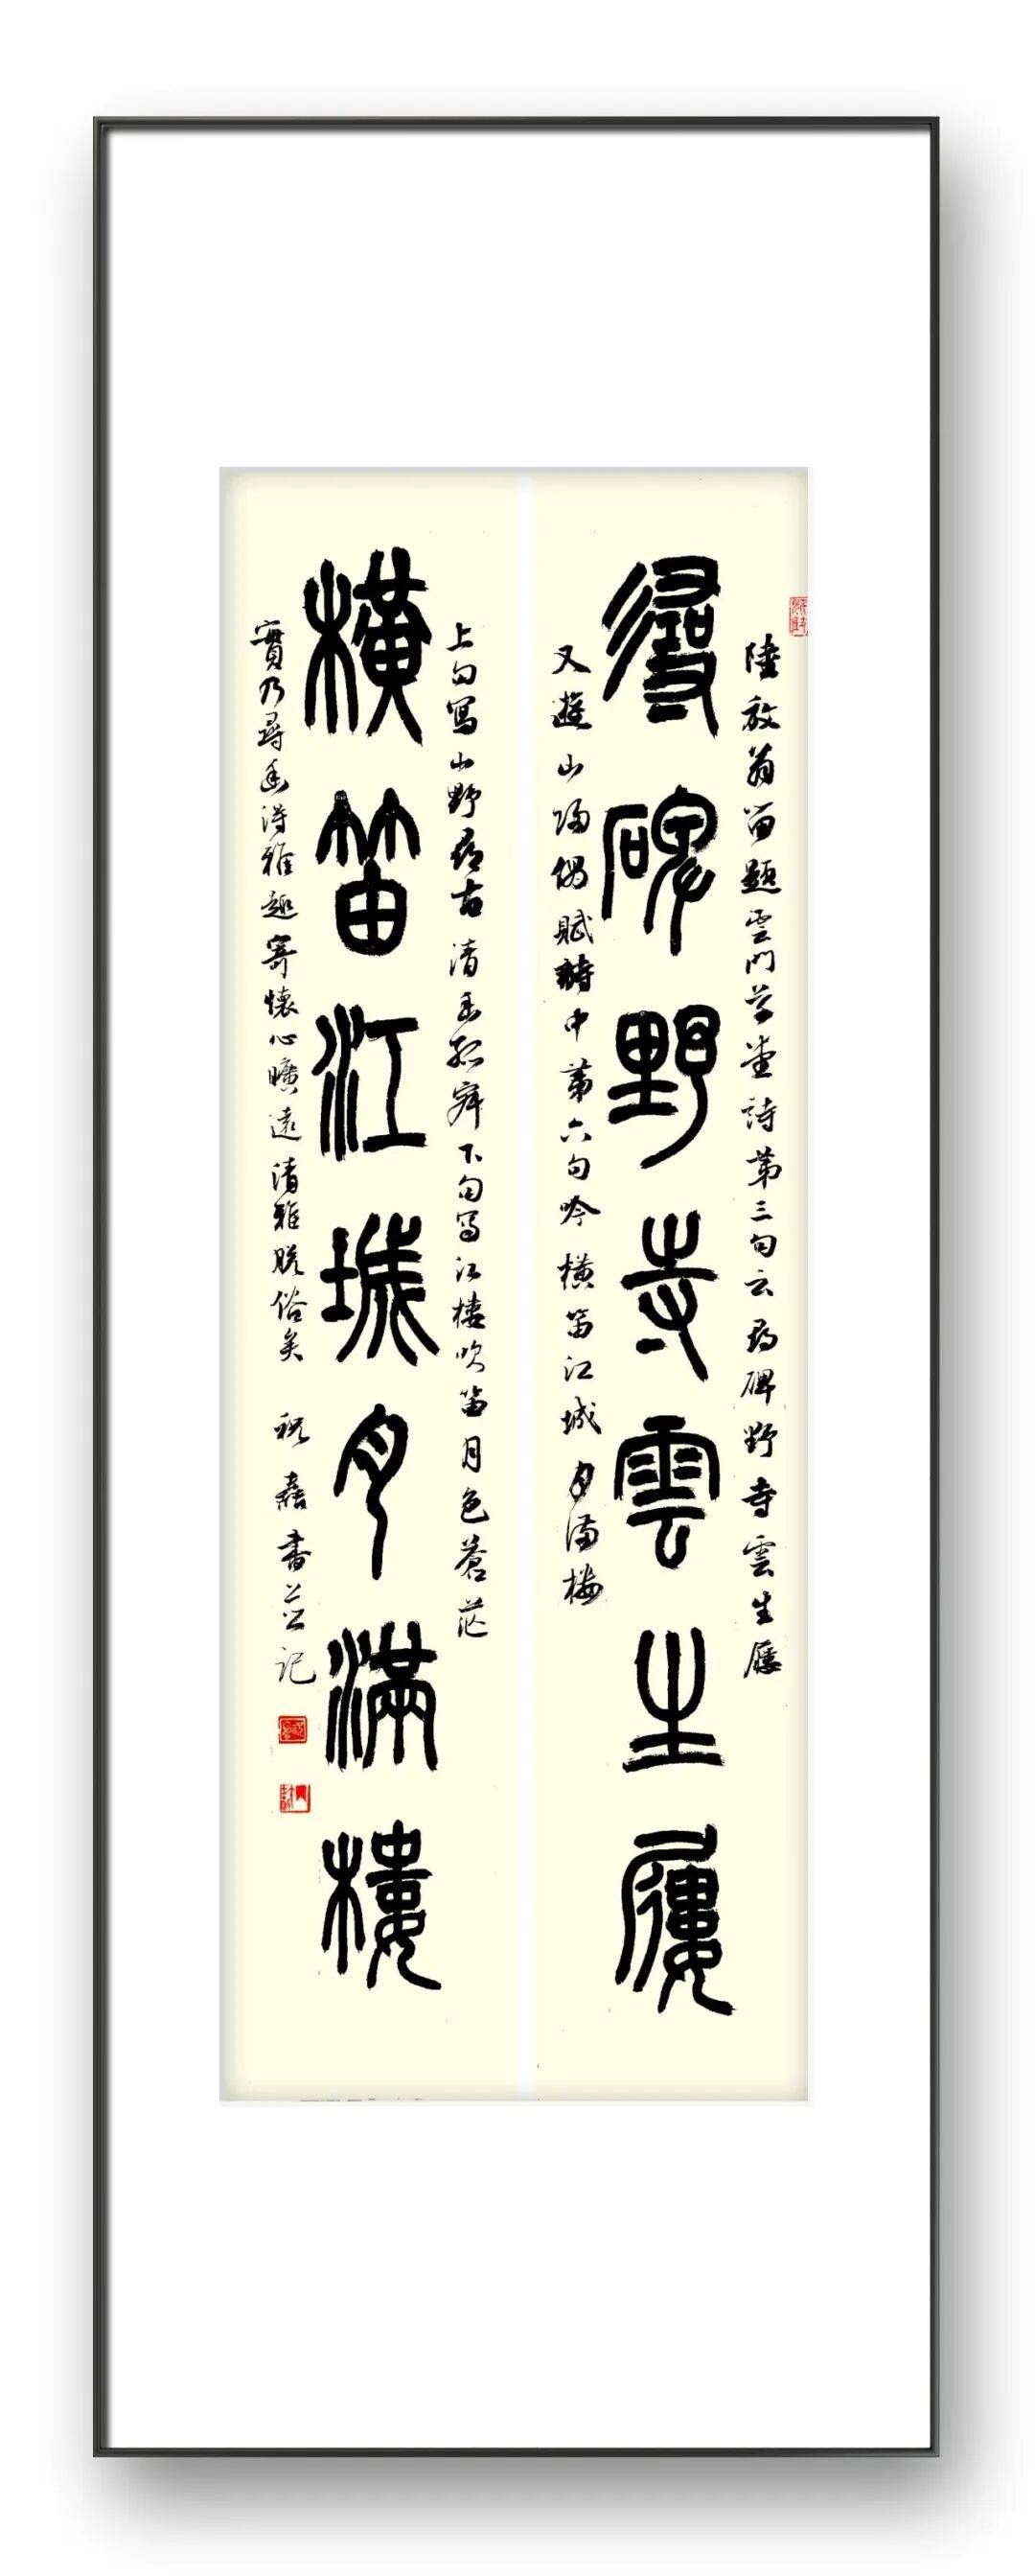 陸放翁留題雲門草堂詩第三句云尋碑野寺雲生屨
尋碑野寺雲生屨
又遊山歸偶賦詩中第六句吟橫笛江城月滿樓
上句寫山野尋古清幽孤寂下句寫江樓吹笛月色蒼茫
橫笛江城月滿樓
實乃尋幽得雅趣寄懷心曠遠清雅脫俗矣 祝嘉書並記